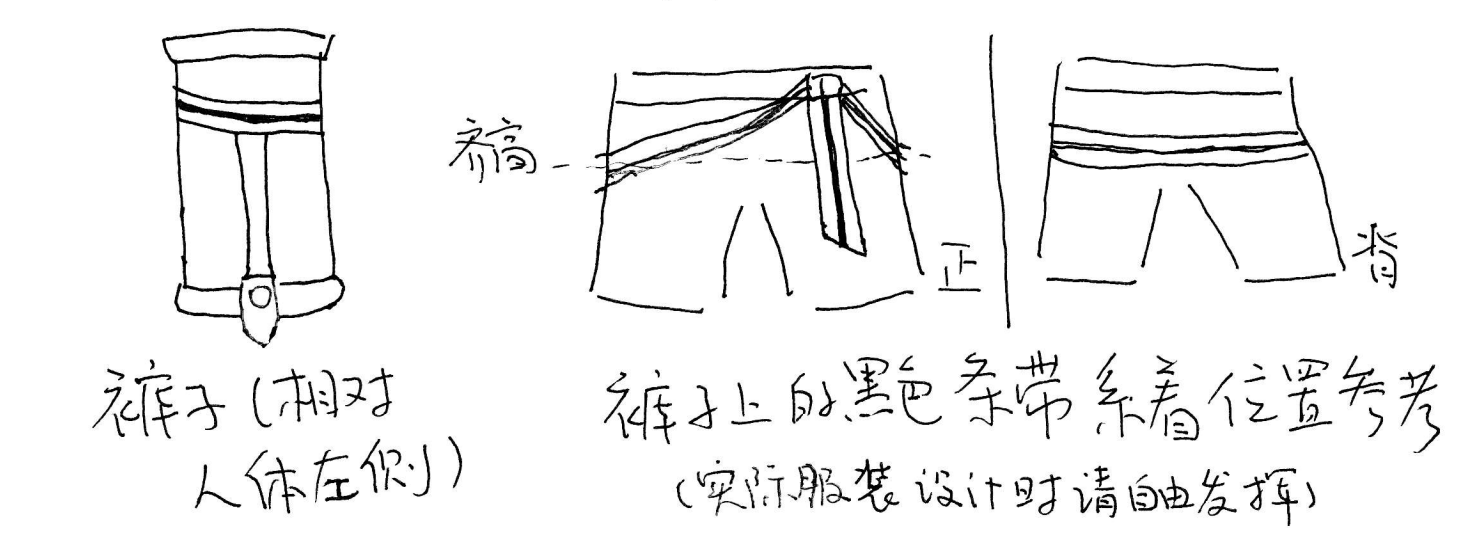 齐高
正
背
裤子(相对
人体左侧)
裤子上的黑色条带系着位置参考
(实际服装设计时请自由发挥)